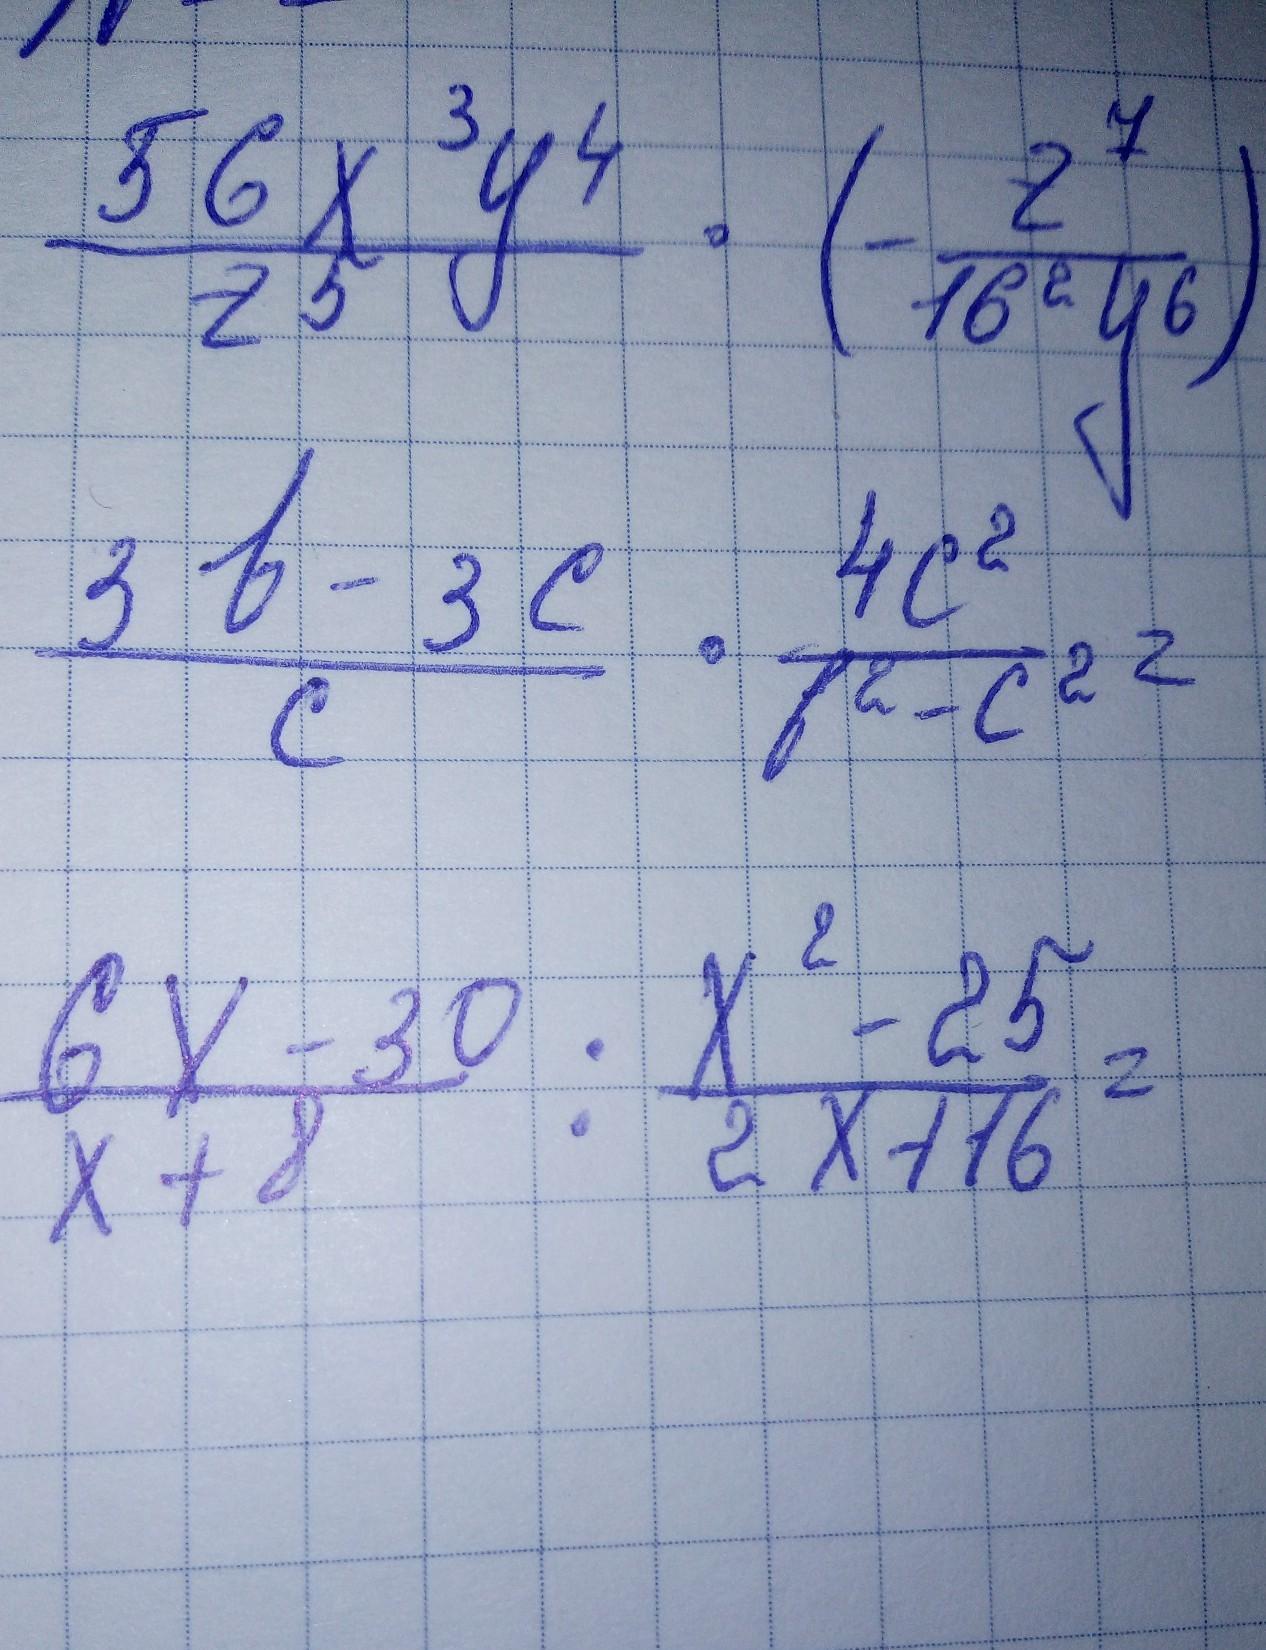 56x³y⁴/z⁵ · (-z⁷/16²y⁶)
3b-3c/c · 4c²/b²-c² =
6x-30/x+8 : x²-25/2x+16 =